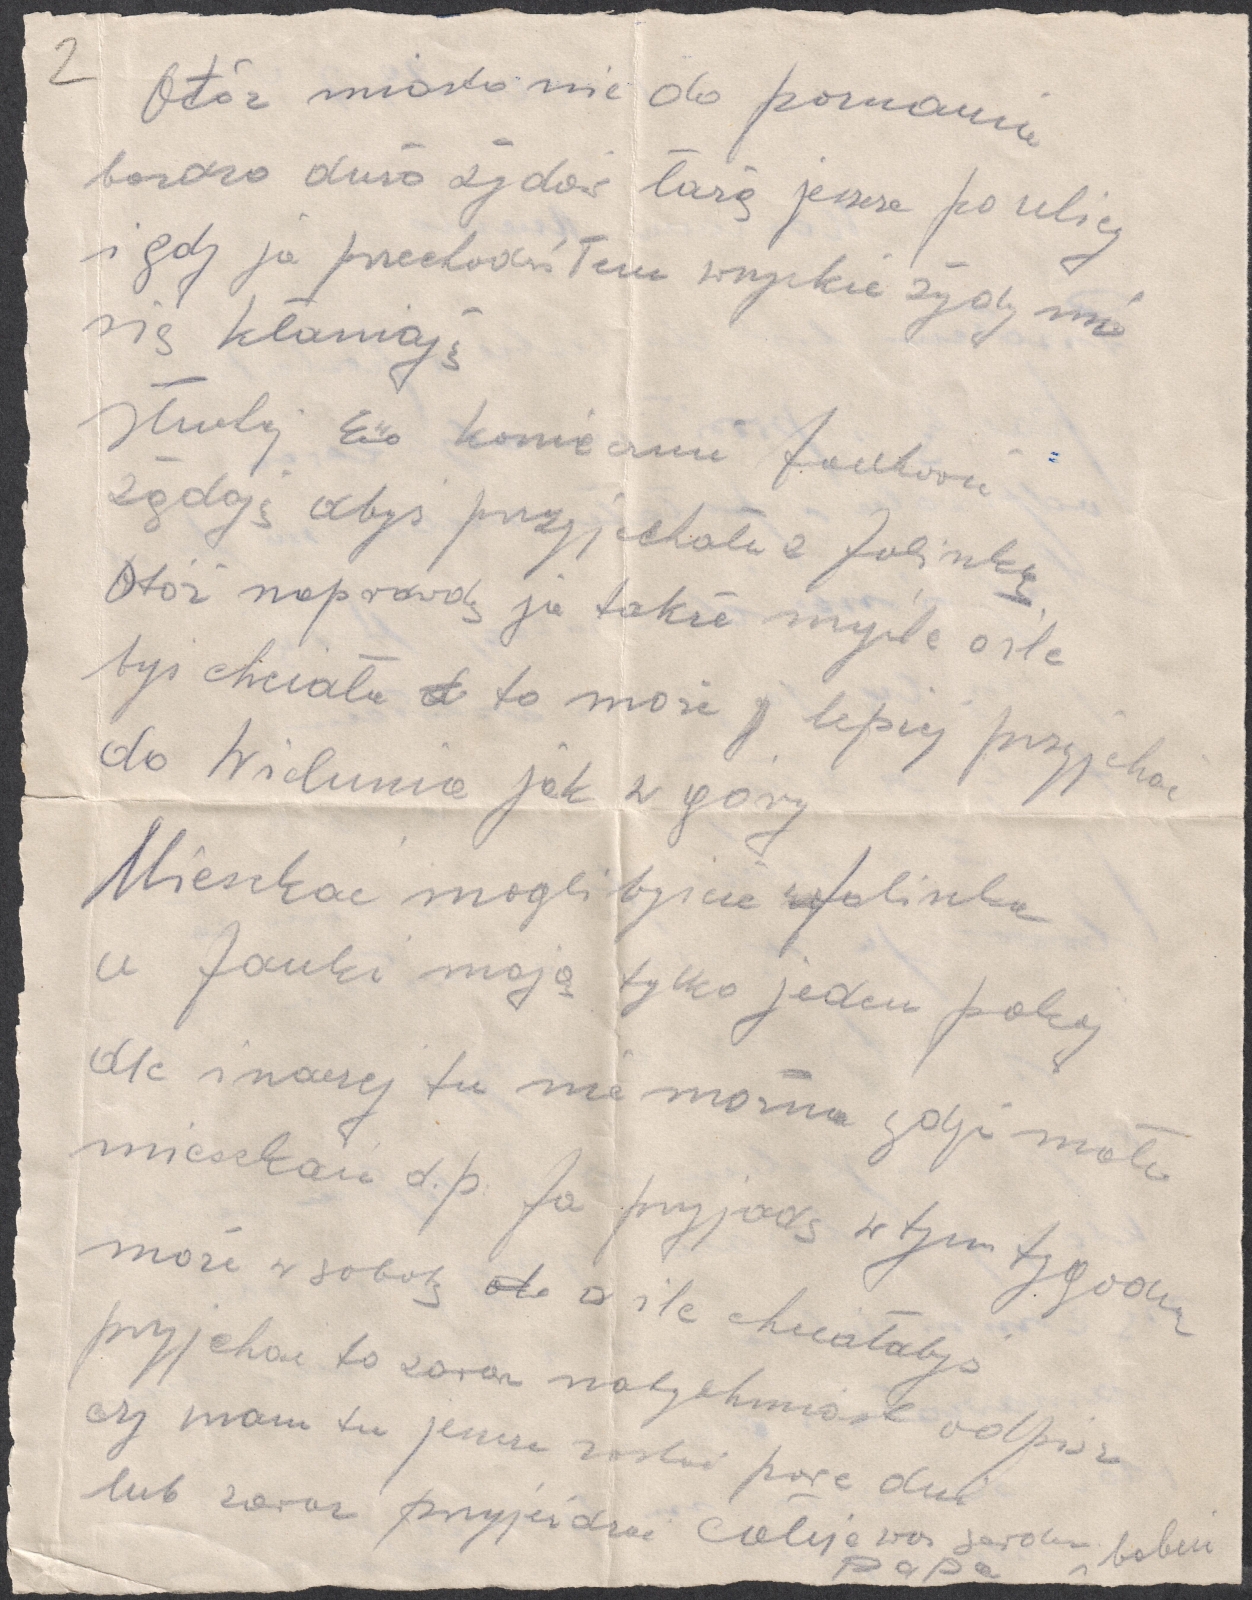 2
Otóż miasto nie do poznania
bardzo dużo żydów łażą jeszcze po ulicy
i gdy ja przechodziłem wszyskie żydy mnie
się kłaniają
Słuchaj koniecznie Jankowie
żądają abyś przyjechała z Jolinką
Otóż naprawdę ja także myśle o ile
byś chciała to może lepiej przyjchać
do Wielunia jak w góry
Mieszkać moglibyście Jolinka
u Janki mają tylko jeden pokój
ale inaczej tu nie można gdyż mało
mieszkań d.p. Ja przyjadę w tym tygodniu
może w sobotę o ile chciałabyś
przyjchać to zaraz natychmiast odpisz
czy mam tu jeszcze zostać pare dni
lub zaraz przyjeżdzać Całuje was serdecz i babcie
Papa